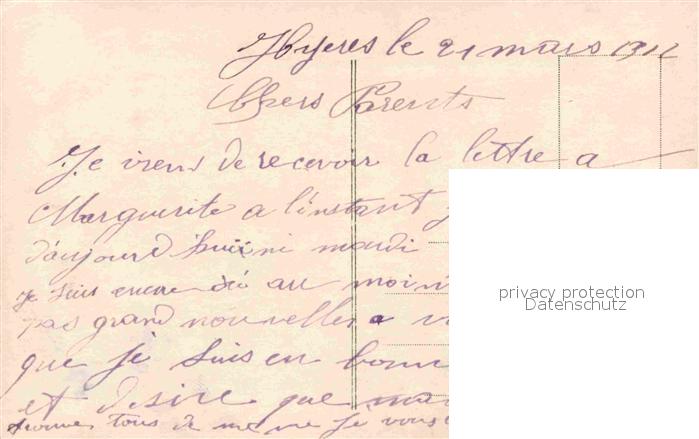 Hyeres le 21 mars 1912
Chers Parents
Je viens de recevoir la lettre a
Marguerite a l'instant
d'aujourd huii ni mardi
je suis encore ici au moin
pas grand nouvelles a
que je suis en bonn
et desire que
tous de meme je vous
privacy protection
Datenschutz